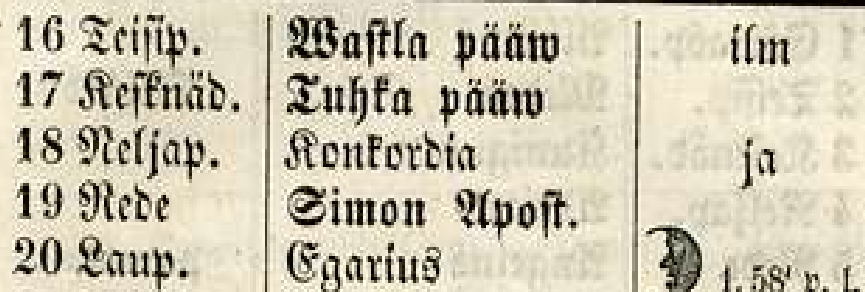 16 Teisip. Wastla pääw ilm
17 Kesknäd. Tuhka pääw
18 Neljap. Konkordia ja
19 Rede Simon Apost.
20 Laup. Egarius 1. 58' p. l.